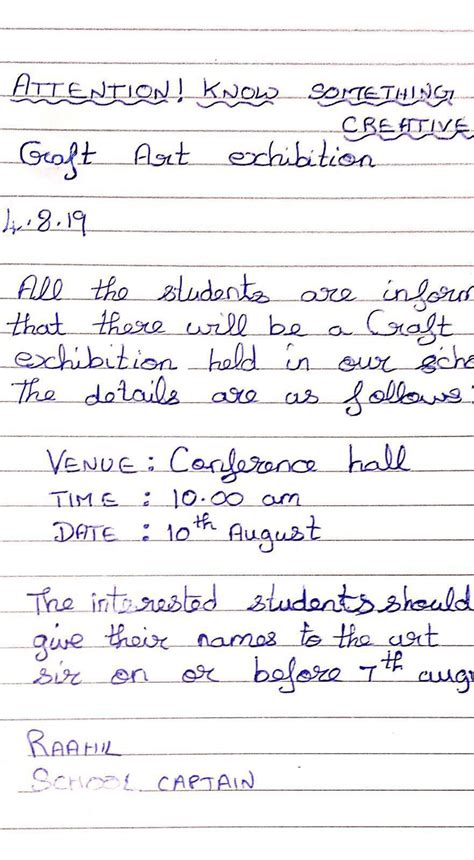 ATTENTION! KNOW SOMETHING
CREATIVE
Craft Art exhibition
4.8.19
All the students are inform
that there will be a Craft
exhibition held in our scho
The details are as follows:
VENUE : Conference hall
TIME : 10.00 am
DATE : 10th August
The interested students should
give their names to the art
sir on or before 7th augu
RAAHIL
SCHOOL CAPTAIN